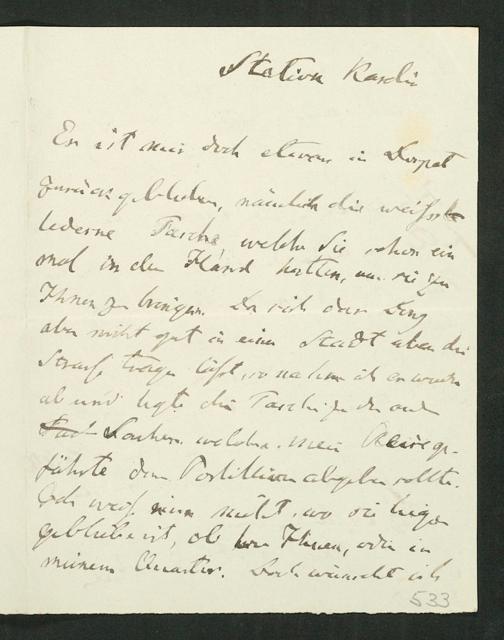 Station Kardis
Es ist mir doch etwas in Dorpat
zurückgeblieben, nämlich die weiss
lederne Tasche, welche Sie schon ein
mal in der Hand hatten, um sie zu
Ihnen zu bringen. Da sich das Ding
aber nicht gut in einer Stadt über die
Strasse tragen lässt, so nahm ich es wieder
ab und legte die Tasche zu den and
Sachen welche mein Reisege-
fährte dem Postillion abgeben sollte.
Ich weiss nun nicht, wo sie liegen
geblieben ist, ob bei Ihnen, oder in
meinem Quartier. Doch wünscht ich
533